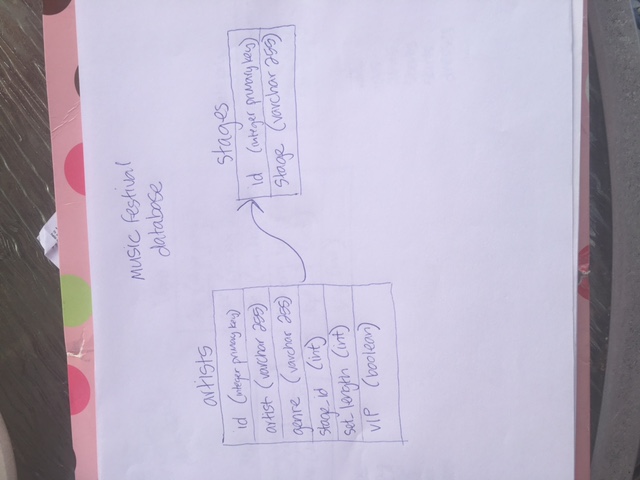 Music Festival
database
artists
id (integer primary key)
artist (varchar 255)
genre (varchar 255)
stage_id (int)
set_length (int)
VIP (boolean)
stages
id (integer primary key)
stage (varchar 255)